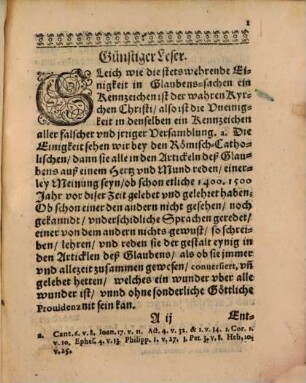 1
Günstiger Leser.
GLeich wie die stets wehrende Ei-
nigkeit in Glaubens-sachen ein
Kennzeichen ist der wahren Kyr-
chen Christi/ also ist die Vneinig-
keit in denselben ein Kennzeichen
aller falscher vnd jrriger Versamblung. a. Die
Einigkeit sehen wir bey den Römisch-Catho-
lischen/ dann sie alle in den Artickeln deß Glau-
bens auß einem Hertz vnd Mund reden/ einer-
ley Meinung seyn/ ob schon etliche 1400. 1500
Jahr vor diser Zeit gelebt vnd gelehret haben:
Ob schon einer den andern nicht gesehen/ noch
gekandt/ vnderschidliche Sprachen geredet/
einer von dem andern nichts gewust/ so schrei-
ben/ lehren/ vnd reden sie der gestalt eynig in
den Articklen deß Glaubens/ als ob sie jmmer
vnd allezeit zusammen gewesen/ conuersiert, vñ
gelebet hetten/ welches ein wunder vber alle
wunder ist/ vnnd ohne sonderliche Göttliche
Prouidenz nit sein kan.
A ij Ent-
a. Cant. 6. v. 8. Ioan. 17. v. 11. Act. 4. v. 32. & 2. v. 14. 1. Cor. 1.
v. 10. Ephes. 4. v. 13. Philipp. 1. v. 27. 1. Pet. 3. v. 8. Heb. 10.
v. 25.